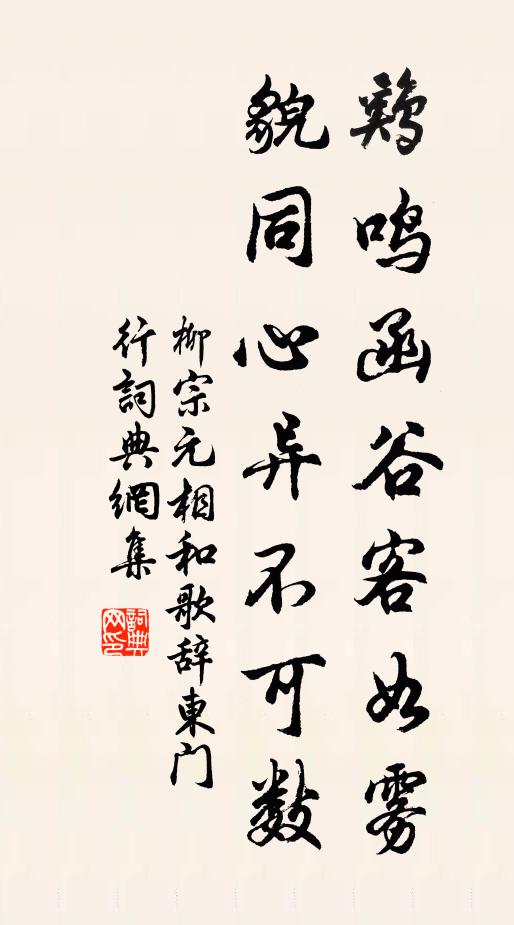 鷄鳴函谷客如雾
貌同心异不可数
柳宗元相和歌辞東门
行詞典網集
詞典
网印